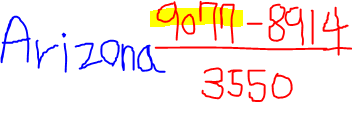 Arizona 9077-8914
3550